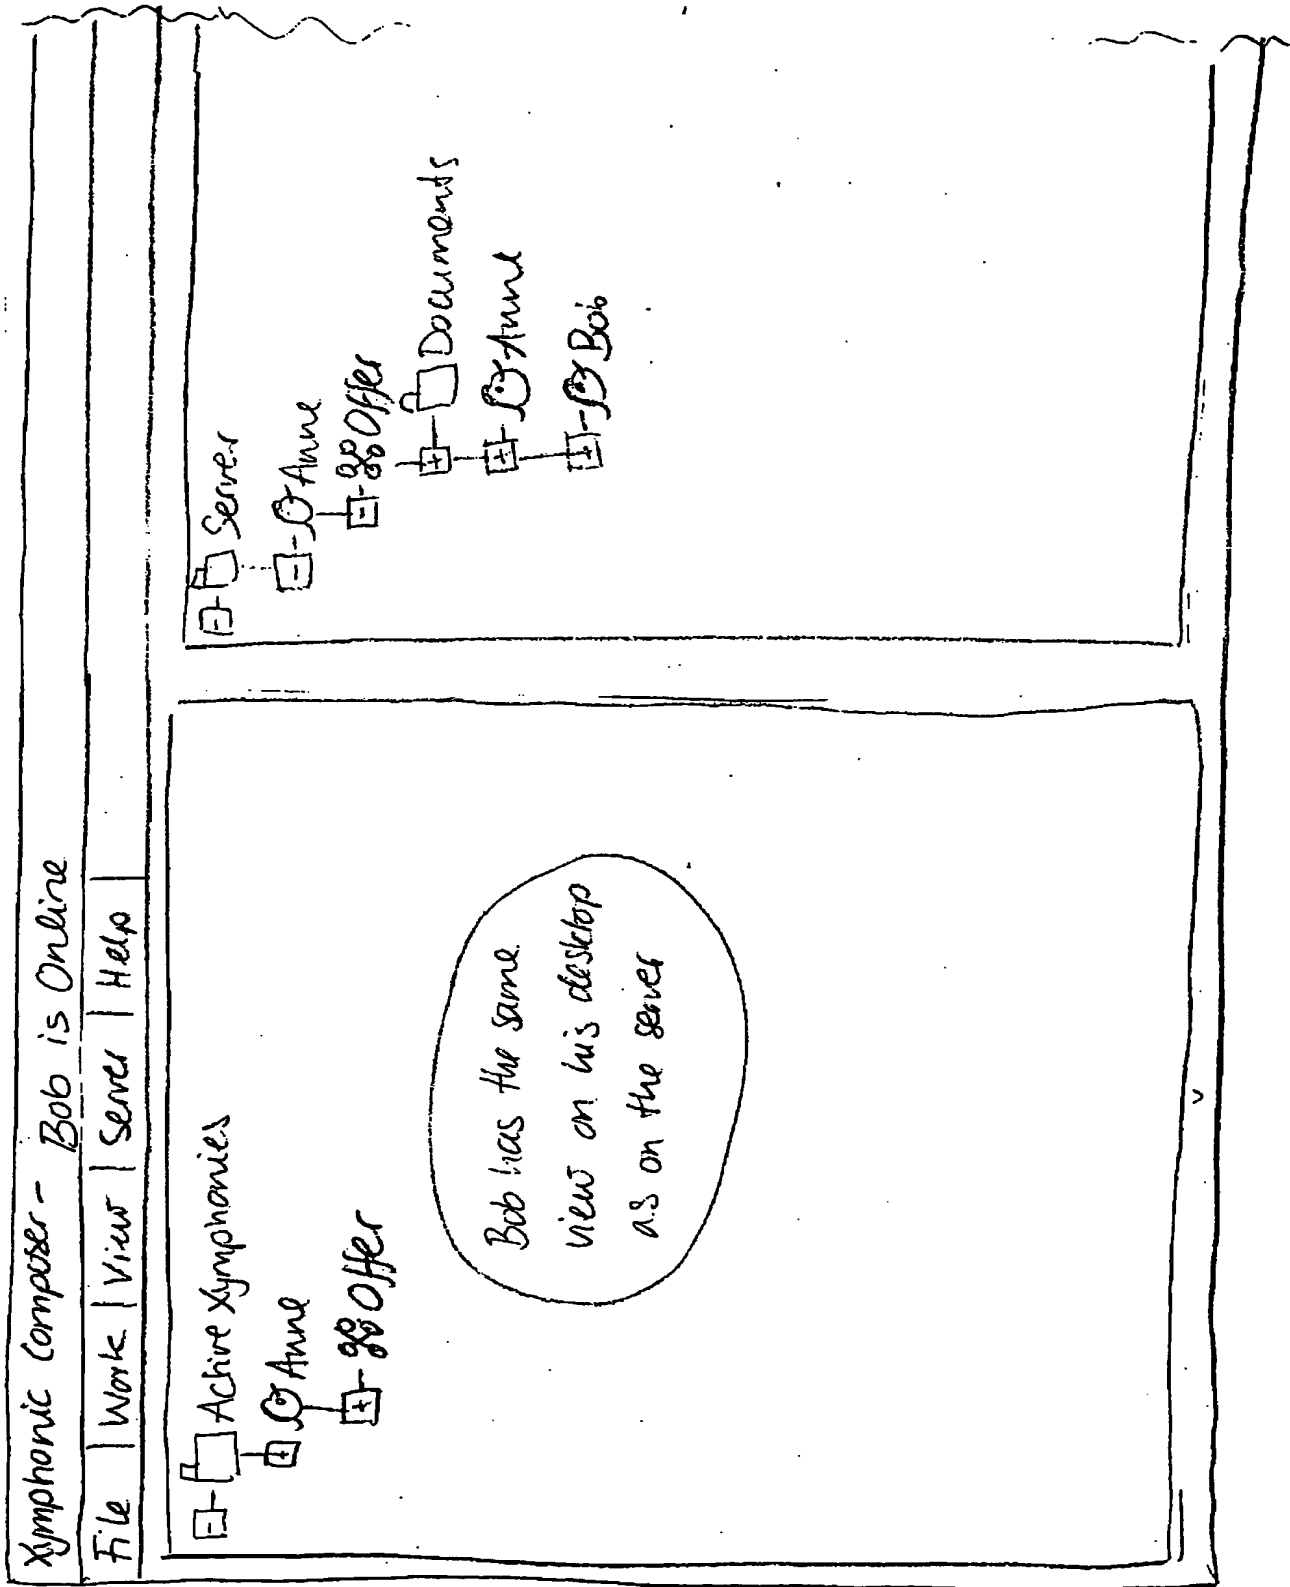 Xymphonic Composer - Bob is Online
File | Work | View | Server | Help |
Active Xymphonies
Anne
Offer
Bob has the same
view on his desktop
as on the server
Server
Anne
Offer
Documents
Anne
Bob